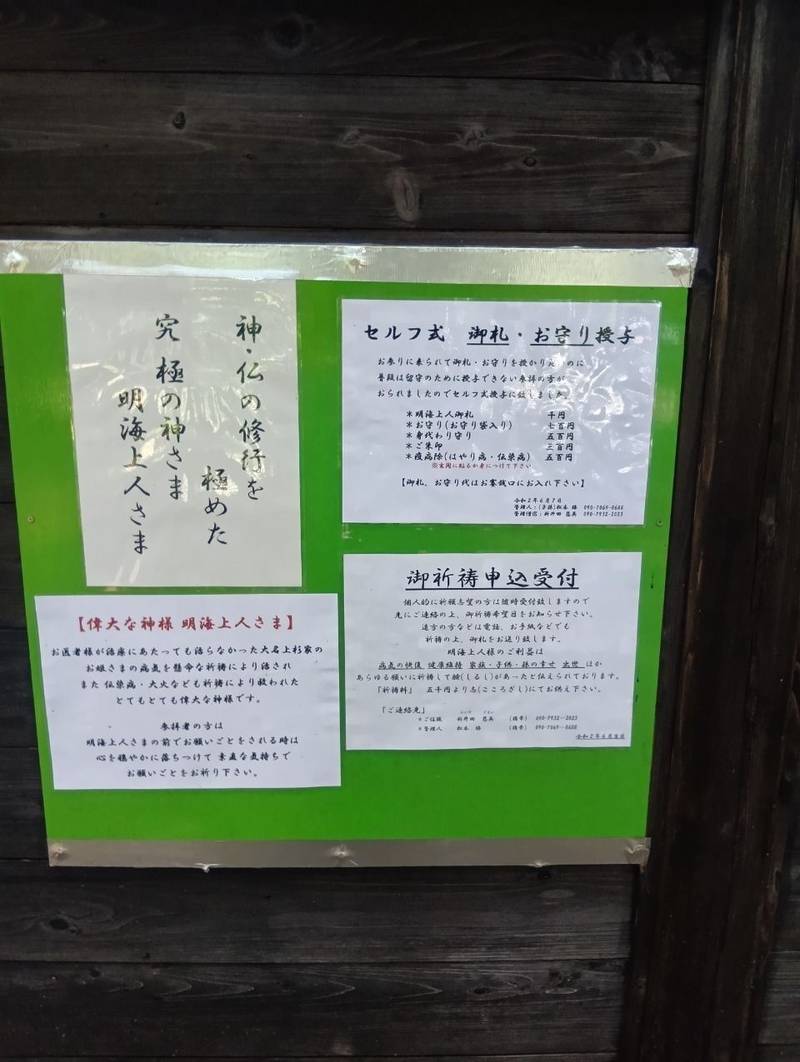 神・仏の修行を
極めた
究極の神さま
明海上人さま
【偉大な神様 明海上人さま】
お医者様が治療にあたっても治らなかった大名上杉家の
お娘さまの病気を懸命な祈祷により治され
また 伝染病・大火なども祈祷により救われた
とてもとても偉大な神様です。
参拝者の方は
明海上人さまの前でお願いごとをされる時は
心を穏やかに落ちつけて 素直な気持ちで
お願いごとをお祈り下さい。
セルフ式 御札・お守り授与
お参りに来られて御札・お守りを授かり
普段は留守のために授与できない参拝の方が
おられましたのでセルフ式授与に致しました。
＊明海上人御札 千円
＊お守り(お守り袋入り) 七百円
＊身代わり守り 五百円
＊ご朱印 三百円
＊疫病除(はやり病・伝染病) 五百円
※玄関に貼るか身につけて下さい
【御札、お守り代はお賽銭口にお入れ下さい】
令和２年６月７日
管理人：松本
管理僧侶：新井田
御祈祷申込受付
個人的に祈願志望の方は随時受付致しますので
先にご連絡の上、御祈祷希望日をお知らせ下さい。
遠方の方などは電話、お手紙などでも
祈祷の上、御札をお送り致します。
明海上人様のご利益は
病気の快復 健康維持 家族・子供・孫の幸せ 出世 ほか
あらゆる願いに祈祷して験(しるし)があったと伝えられております。
『祈祷料』 五千円より志(こころざし)にてお供え下さい。
『ご連絡先』
＊ご住職 新井田 (携帯) 090-7932-2023
＊管理人 松本 (携帯)